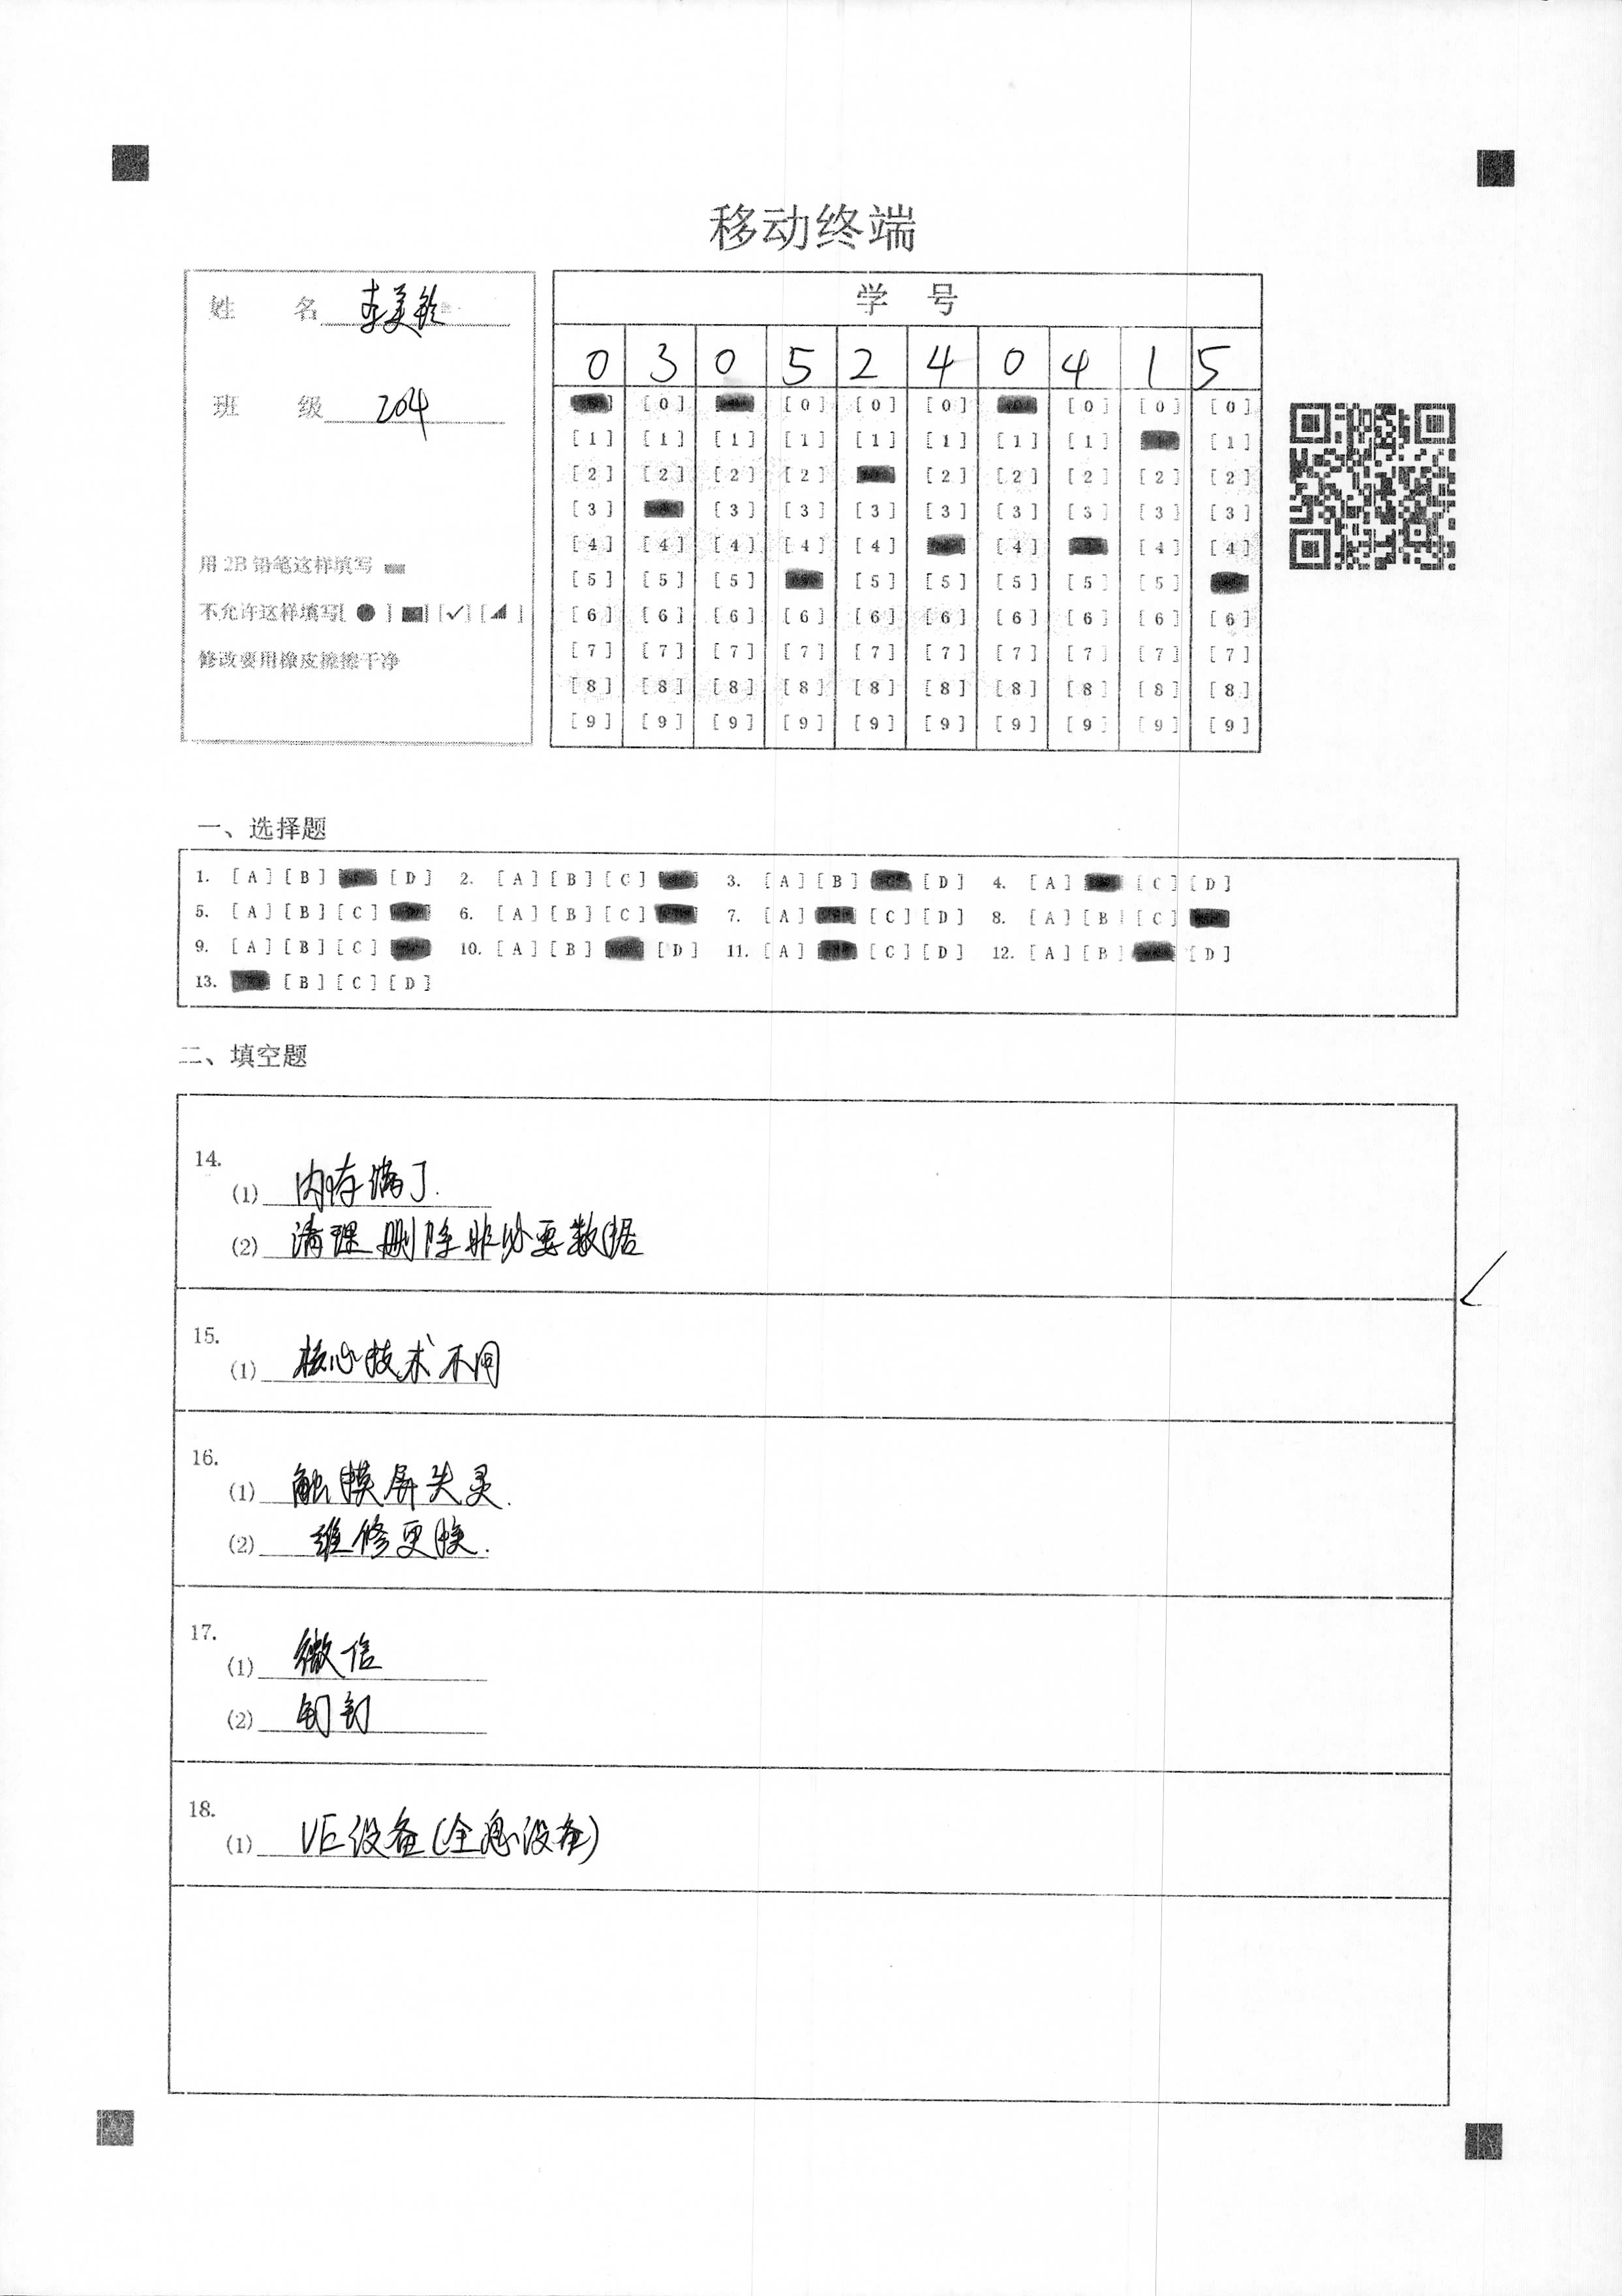 移动终端
姓 名 李美玲
班 级 204
用 2B 铅笔这样填写
不允许这样填写[ ● ] [ ■ ] [ ✓ ] [ ◢ ]
修改要用橡皮擦擦干净
学 号
0 3 0 5 2 4 0 4 1 5
[0] [0] [0] [0] [0] [0] [0]
[1] [1] [1] [1] [1] [1] [1] [1] [1]
[2] [2] [2] [2] [2] [2] [2] [2] [2]
[3] [3] [3] [3] [3] [3] [3] [3] [3]
[4] [4] [4] [4] [4] [4] [4] [4]
[5] [5] [5] [5] [5] [5] [5] [5]
[6] [6] [6] [6] [6] [6] [6] [6] [6] [6]
[7] [7] [7] [7] [7] [7] [7] [7] [7] [7]
[8] [8] [8] [8] [8] [8] [8] [8] [8] [8]
[9] [9] [9] [9] [9] [9] [9] [9] [9] [9]
一、选择题
1. [A] [B] [D] 2. [A] [B] [C] 3. [A] [B] [D] 4. [A] [C] [D]
5. [A] [B] [C] 6. [A] [B] [C] 7. [A] [C] [D] 8. [A] [B] [C]
9. [A] [B] [C] 10. [A] [B] [D] 11. [A] [C] [D] 12. [A] [B] [D]
13. [B] [C] [D]
二、填空题
14.
(1) 内存满了.
(2) 清理删除非必要数据
15.
(1) 核心技术不同
16.
(1) 触摸屏失灵.
(2) 维修更换.
17.
(1) 微信
(2) 钉钉
18.
(1) VE设备(全息设备)